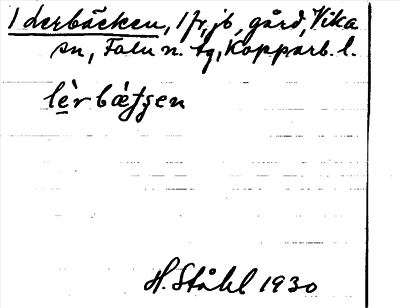 Iderbäcken, 1 fr, jb, gård, Vika
sn, Falu n. tg, Kopparb. l.
lèr bǽtʃen
H. Ståhl 1930